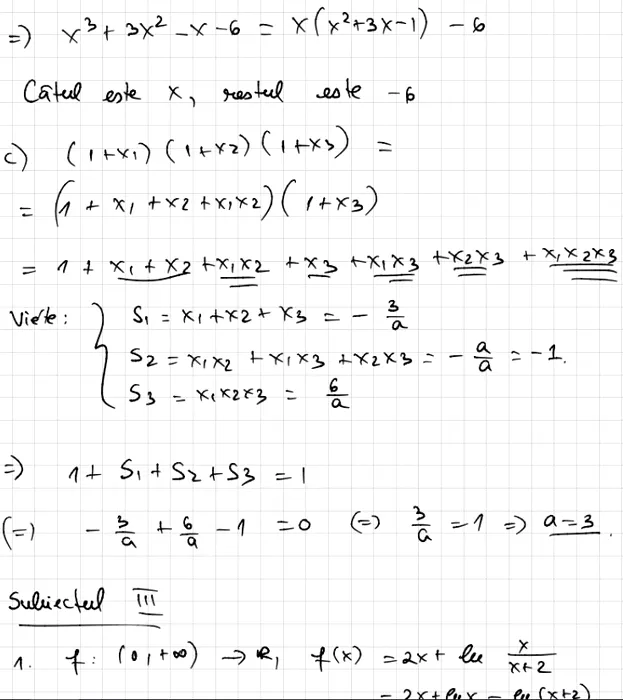 =) x³ + 3x² - x - 6 = x(x²+3x-1) - 6
Câtul este x, restul este -6
c) (1+x1) (1+x2) (1+x3) =
= (1 + x1 + x2 + x1x2) (1+x3)
= 1 + x1 + x2 + x1x2 + x3 + x1x3 + x2x3 + x1x2x3
Viète: { S1 = x1+x2+x3 = - 3/a
S2 = x1x2 + x1x3 + x2x3 = - a/a = -1.
S3 = x1x2x3 = 6/a
=) 1 + S1 + S2 + S3 = 1
(=) - 3/a + 6/a - 1 = 0 (=) 3/a = 1 =) a = 3.
Subiectul III
1. f: (0,+∞) → R, f(x) = 2x + ln x/(x+2)
= 2x + ln x - ln (x+2)